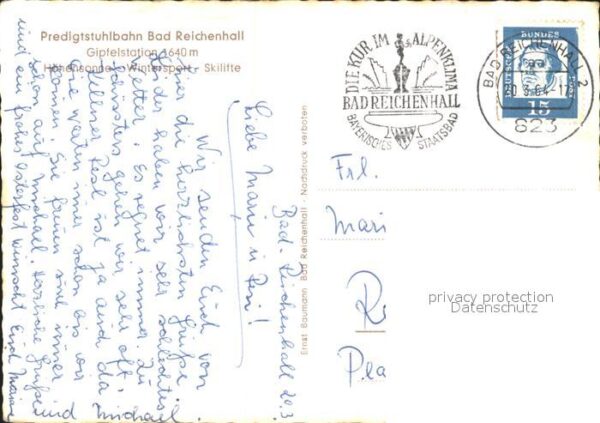 Predigtstuhlbahn Bad Reichenhall
Gipfelstation 1640 m
Höhensonne - Wintersport - Skilifte
DIE KUR IM ALPENKLIMA
BAD REICHENHALL
BAYERISCHES STAATSBAD
BAD REICHENHALL 2
20.3.64-17
823
DEUTSCHE BUNDESPOST
15
Ernst Baumann Bad Reichenhall · Nachdruck verboten
Bad-Reichenhall 20.3.
Liebe Maria u Resi!
Wir senden Euch von
hier die herzlichsten Grüße
Leider haben wir sehr schlechtes
Wetter. Es regnet immer. Zu
gehen wir sehr oft.
Resi ist ja auch da
Sie warten immer schon bis wir
kommen. Sie freuen sich immer
schon auf Michael. Herzliche Grüße
und ein frohes Osterfest wünscht Euch Maria
und Michael.
Frl.
Mari
R
Pla
privacy protection
Datenschutz